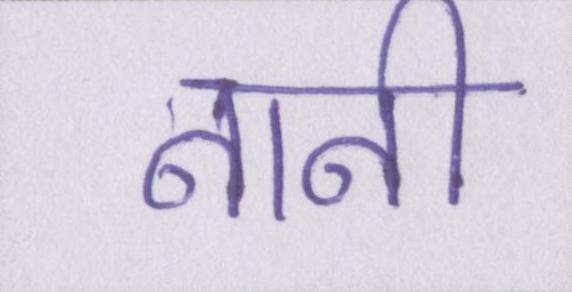 नानी